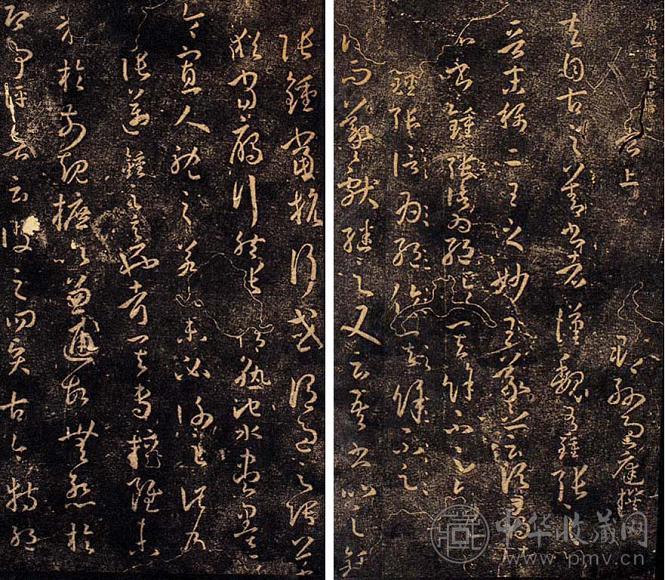 卷上
吳郡孫過庭撰
夫自古之善書者漢魏有鍾張
晉末稱二王之妙王羲之云頃尋
名書鍾張信為絕倫其餘不足
鍾張信為絕倫其餘不足
而羲獻繼之又云吾書比之鍾
張鍾當抗行或謂過之張草
猶當雁行然張精熟池水盡墨
令寡人耽之若此未必謝之此乃
張邁鍾之意也考其專擅雖未
果於前規摭以兼通故無慚於
即事評者云彼之四賢古今特絕
中华收藏网
www.pmv.cn